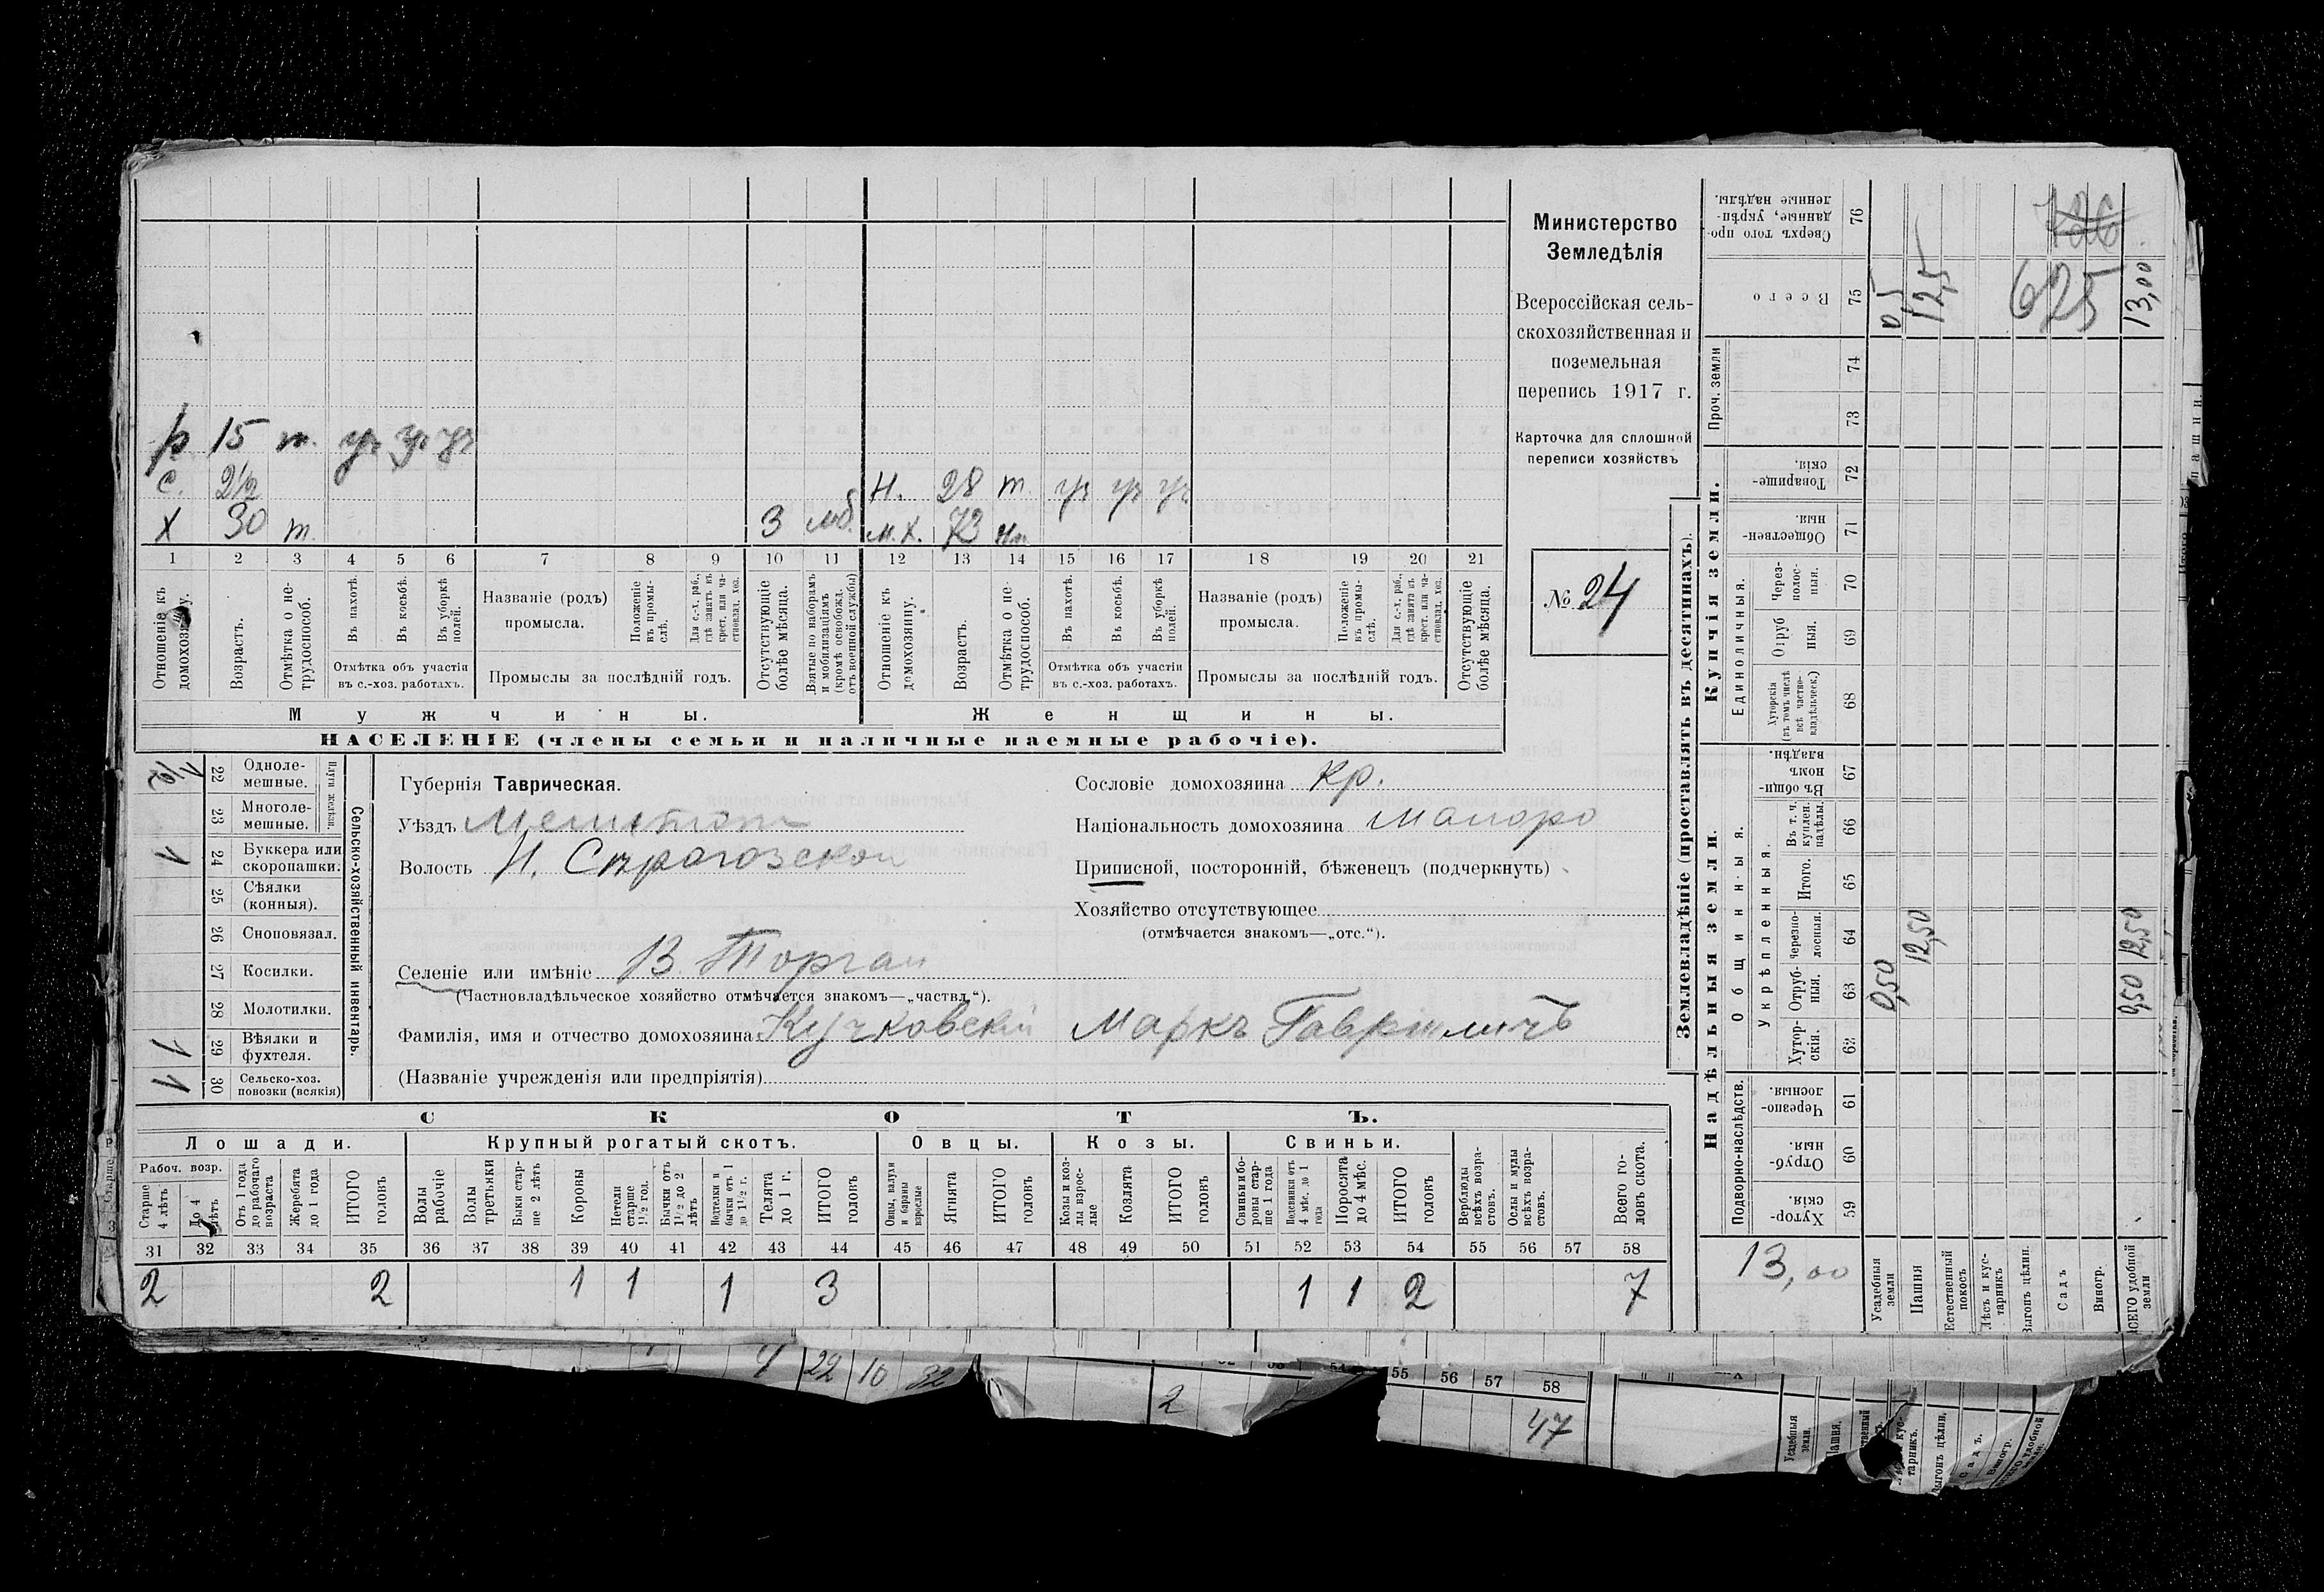 р 15 т. уч уч уч
с. 2½ н. 28 т. уч уч уч
х 30 т. 3 мб. м.х. 73 нт.
1 2 3 4 5 6 7 8 9 10 11 12 13 14 15 16 17 18 19 20 21
Отношеніе къ домохозяину.
Возрастъ.
Отмѣтка о нетрудоспособ.
Въ пахотѣ.
Въ косьбѣ.
Въ уборкѣ полей.
Отмѣтка объ участіи
въ с.-хоз. работахъ.
Названіе (родъ)
промысла.
Положеніе въ промыслѣ.
Для с.-х. раб., гдѣ занятъ въ крест. или частновлад. хоз.
Промыслы за послѣдній годъ.
Отсутствующіе болѣе мѣсяца.
Взятые по наборамъ и мобилизаціямъ (кромѣ освобожд. отъ военной службы)
Отношеніе къ домохозяину.
Возрастъ.
Отмѣтка о нетрудоспособ.
Въ пахотѣ.
Въ косьбѣ.
Въ уборкѣ полей.
Отмѣтка объ участіи
въ с.-хоз. работахъ.
Названіе (родъ)
промысла.
Положеніе въ промыслѣ.
Для с.-х. раб., гдѣ занята въ крест. или частновлад. хоз.
Промыслы за послѣдній годъ.
Отсутствующіе болѣе мѣсяца.
Мужчины. Женщины.
НАСЕЛЕНІЕ (члены семьи и наличные наемные рабочіе).
Министерство
Земледѣлія
Всероссійская сель-
скохозяйственная и
поземельная
перепись 1917 г.
Карточка для сплошной
переписи хозяйствъ
№ 24
Сельско-хозяйственный инвентарь.
Плуги желѣзн.
1/2 22 Одноле-
мешные.
23 Многоле-
мешные.
1 24 Буккера или
скоропашки.
25 Сѣялки
(конныя).
26 Сноповязал.
27 Косилки.
28 Молотилки.
1 29 Вѣялки и
фухтеля.
1 30 Сельско-хоз.
повозки (всякія)
Губернія Таврическая.
Уѣздъ Мелитоп
Волость Н. Сѣрогозской
Селеніе или имѣніе В. Торгаи
(Частновладѣльческое хозяйство отмѣчается знакомъ—„частвл.“).
Фамилія, имя и отчество домохозяина Кучковскій Маркъ Гавриличъ
(Названіе учрежденія или предпріятія)
Сословіе домохозяина кр.
Національность домохозяина Малоро
Приписной, посторонній, бѣженецъ (подчеркнуть)
Хозяйство отсутствующее
(отмѣчается знакомъ—„отс.“).
СКОТЪ.
Лошади. Крупный рогатый скотъ. Овцы. Козы. Свиньи.
Рабоч. возр.
Старше 4 лѣтъ
До 4 лѣтъ
Отъ 1 года до рабочаго возраста
Жеребята до 1 года
ИТОГО головъ
Волы рабочіе
Волы третьяки
Быки старше 2 лѣтъ
Коровы
Нетели старше 1½ год.
Бычки отъ 1½ до 2 лѣтъ
Подтелки и бычки отъ 1 до 1½ г.
Телята до 1 г.
ИТОГО головъ
Овцы, валухи и бараны взрослые
Ягнята
ИТОГО головъ
Козы и козлы взрослые
Козлята
ИТОГО головъ
Свиньи и боровы старше 1 года
Подсвинки отъ 4 мѣс. до 1 года
Поросята до 4 мѣс.
ИТОГО головъ
Верблюды всѣхъ возрастовъ.
Ослы и мулы всѣхъ возрастовъ.
Всего головъ скота.
31 32 33 34 35 36 37 38 39 40 41 42 43 44 45 46 47 48 49 50 51 52 53 54 55 56 57 58
2 2 1 1 1 3 1 1 2 7
Землевладѣніе (проставлять въ десятинахъ).
Надѣльныя земли. Купчія земли.
Подворно-наслѣдств.
Общинныя.
Укрѣпленныя.
Единоличныя.
Проч. земли
Сверхъ того проданные, укрѣпленные надѣлы. 76
Всего 75 0,5 12,5 625 13,00
126
74
73
Товарищескія. 72
Общественныя. 71
Черезполосныя. 70
Отрубныя. 69
Хуторскія (въ томъ числѣ всѣ частновладѣльческ.) 68
Въ общинномъ владѣн. 67
Въ т. ч. куплен. надѣлы. 66
Итого. 65
Черезполосныя. 64 12,50 12,50
Отрубныя. 63 0,50 0,50
Хуторскія. 62
Черезполосныя. 61
Отрубныя. 60
Хуторскія. 59
13,00
Усадебныя земли
Пашня
Естественный покосъ
Лѣсъ и кустарникъ
Выгонъ цѣлин.
Садъ
Виногр.
ВСЕГО удобной земли
22 10 32
2
55 56 57 58
47
Усадебныя земли.
Пашня.
Выгонъ цѣлин.
Садъ.
Виногр.